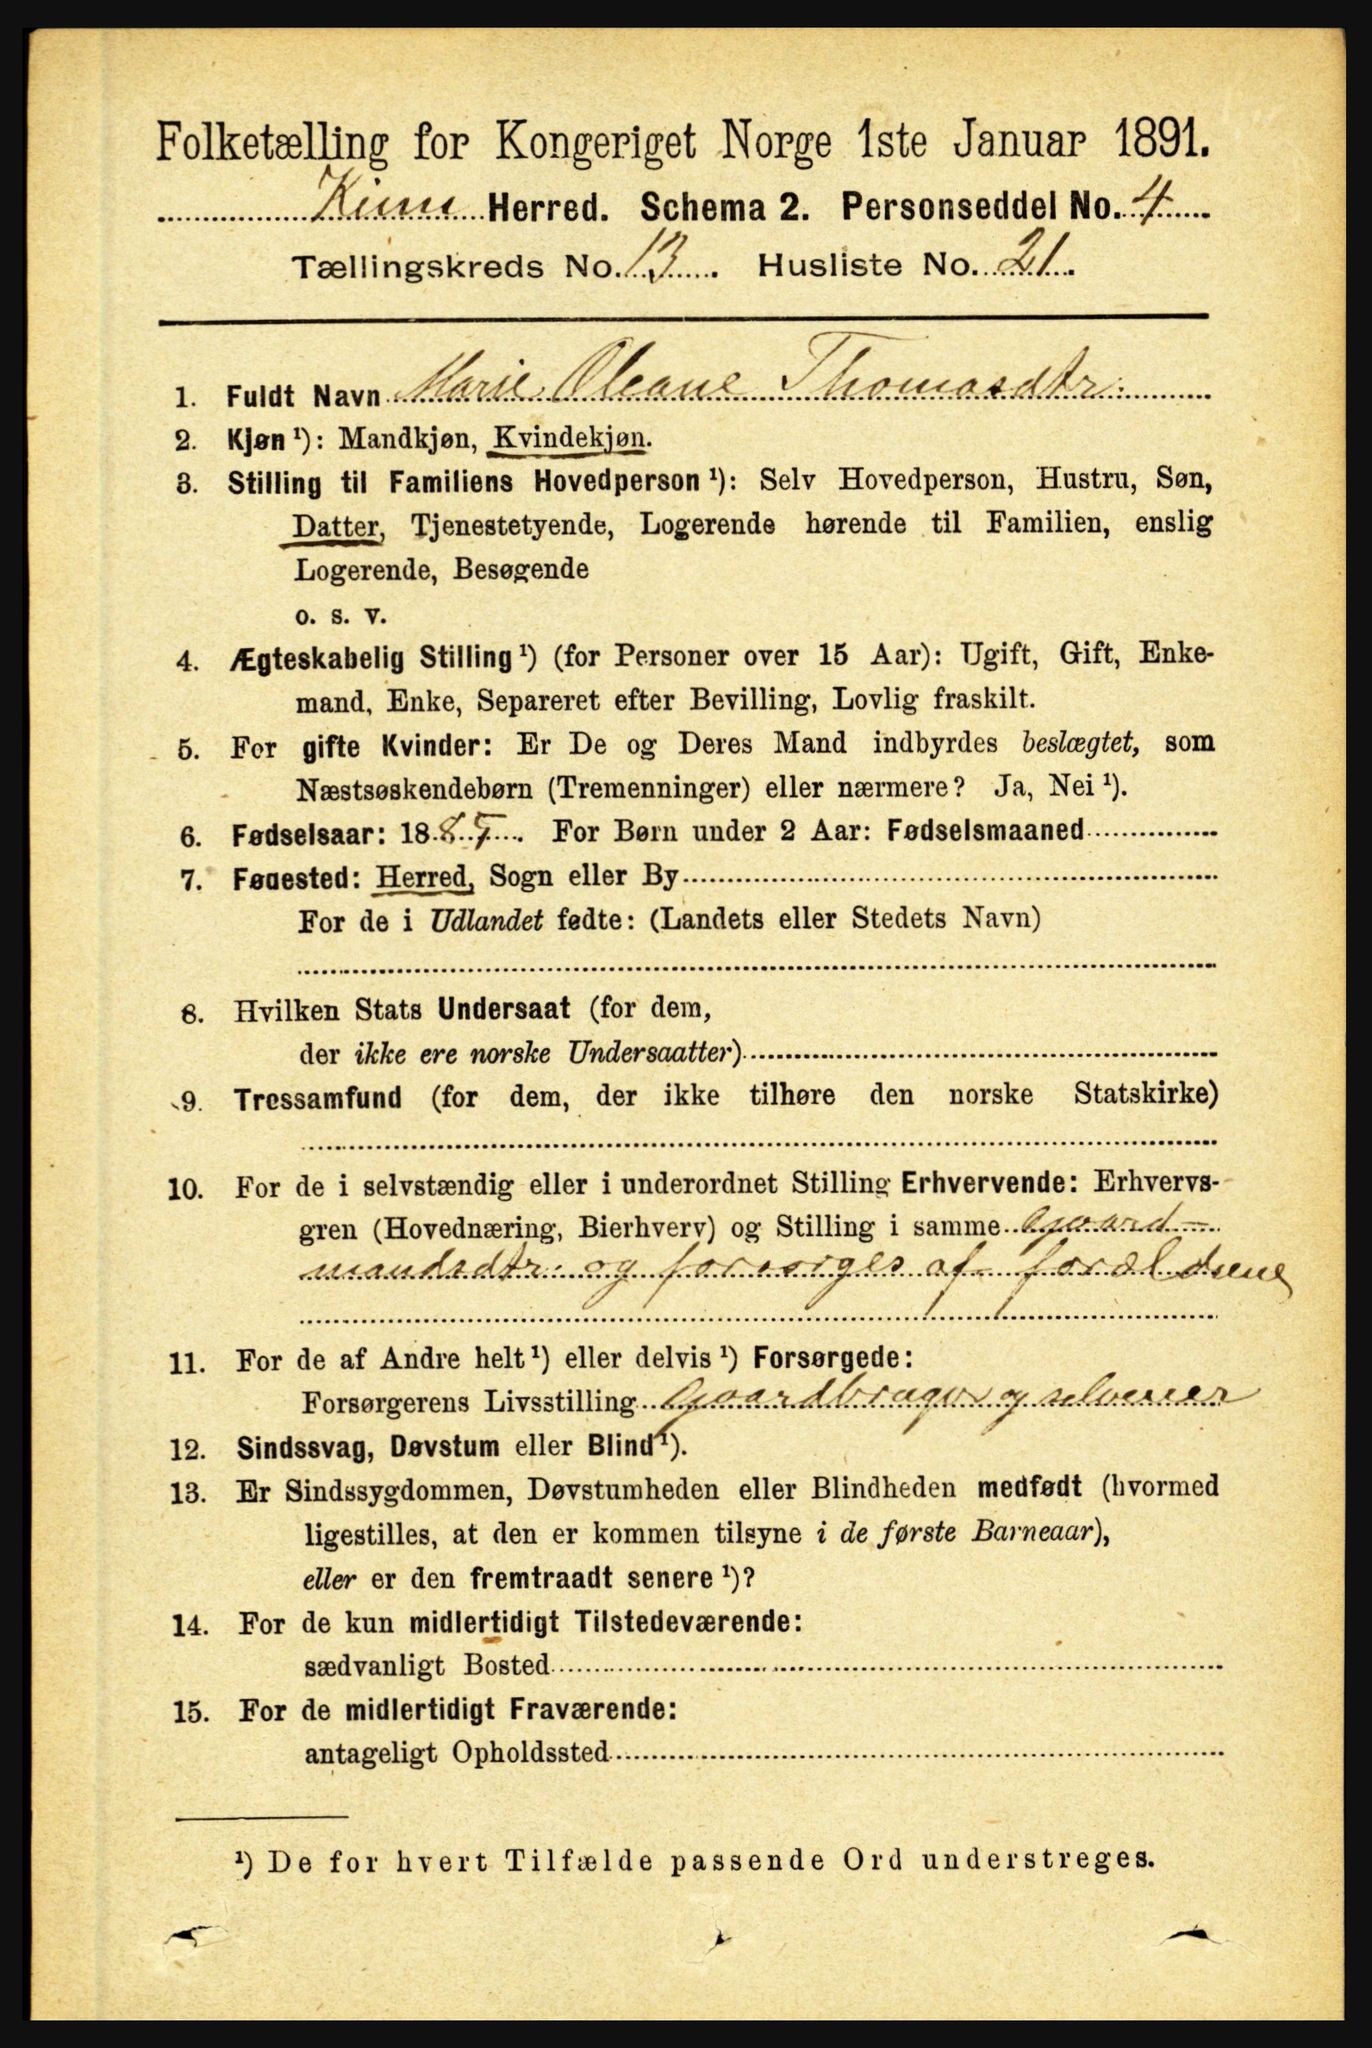 Folketælling for Kongeriget Norge 1ste Januar 1891.
Kinn Herred. Schema 2. Personseddel No. 4
Tællingskreds No. 13. Husliste No. 21.
1. Fuldt Navn Marie Oleane Thomasdtr.
2. Kjøn ¹): Mandkjøn, Kvindekjøn.
3. Stilling til Familiens Hovedperson ¹): Selv Hovedperson, Hustru, Søn,
Datter, Tjenestetyende, Logerende hørende til Familien, enslig
Logerende, Besøgende
o. s. v.
4. Ægteskabelig Stilling ¹) (for Personer over 15 Aar): Ugift, Gift, Enke-
mand, Enke, Separeret efter Bevilling, Lovlig fraskilt.
5. For gifte Kvinder: Er De og Deres Mand indbyrdes beslægtet, som
Næstsøskendebørn (Tremenninger) eller nærmere? Ja, Nei ¹).
6. Fødselsaar: 18 85. For Børn under 2 Aar: Fødselsmaaned
7. Fødested: Herred, Sogn eller By
For de i Udlandet fødte: (Landets eller Stedets Navn)
8. Hvilken Stats Undersaat (for dem,
der ikke ere norske Undersaatter)
9. Trossamfund (for dem, der ikke tilhøre den norske Statskirke)
10. For de i selvstændig eller i underordnet Stilling Erhvervende: Erhvervs-
gren (Hovednæring, Bierhverv) og Stilling i samme Gaard-
mandsdtr. og forsørges af forældrene
11. For de af Andre helt ¹) eller delvis ¹) Forsørgede:
Forsørgerens Livsstilling Gaardbruger og selveier
12. Sindssvag, Døvstum eller Blind ¹).
13. Er Sindssygdommen, Døvstumheden eller Blindheden medfødt (hvormed
ligestilles, at den er kommen tilsyne i de første Barneaar),
eller er den fremtraadt senere ¹)?
14. For de kun midlertidigt Tilstedeværende:
sædvanligt Bosted
15. For de midlertidigt Fraværende:
antageligt Opholdssted
¹) De for hvert Tilfælde passende Ord understreges.